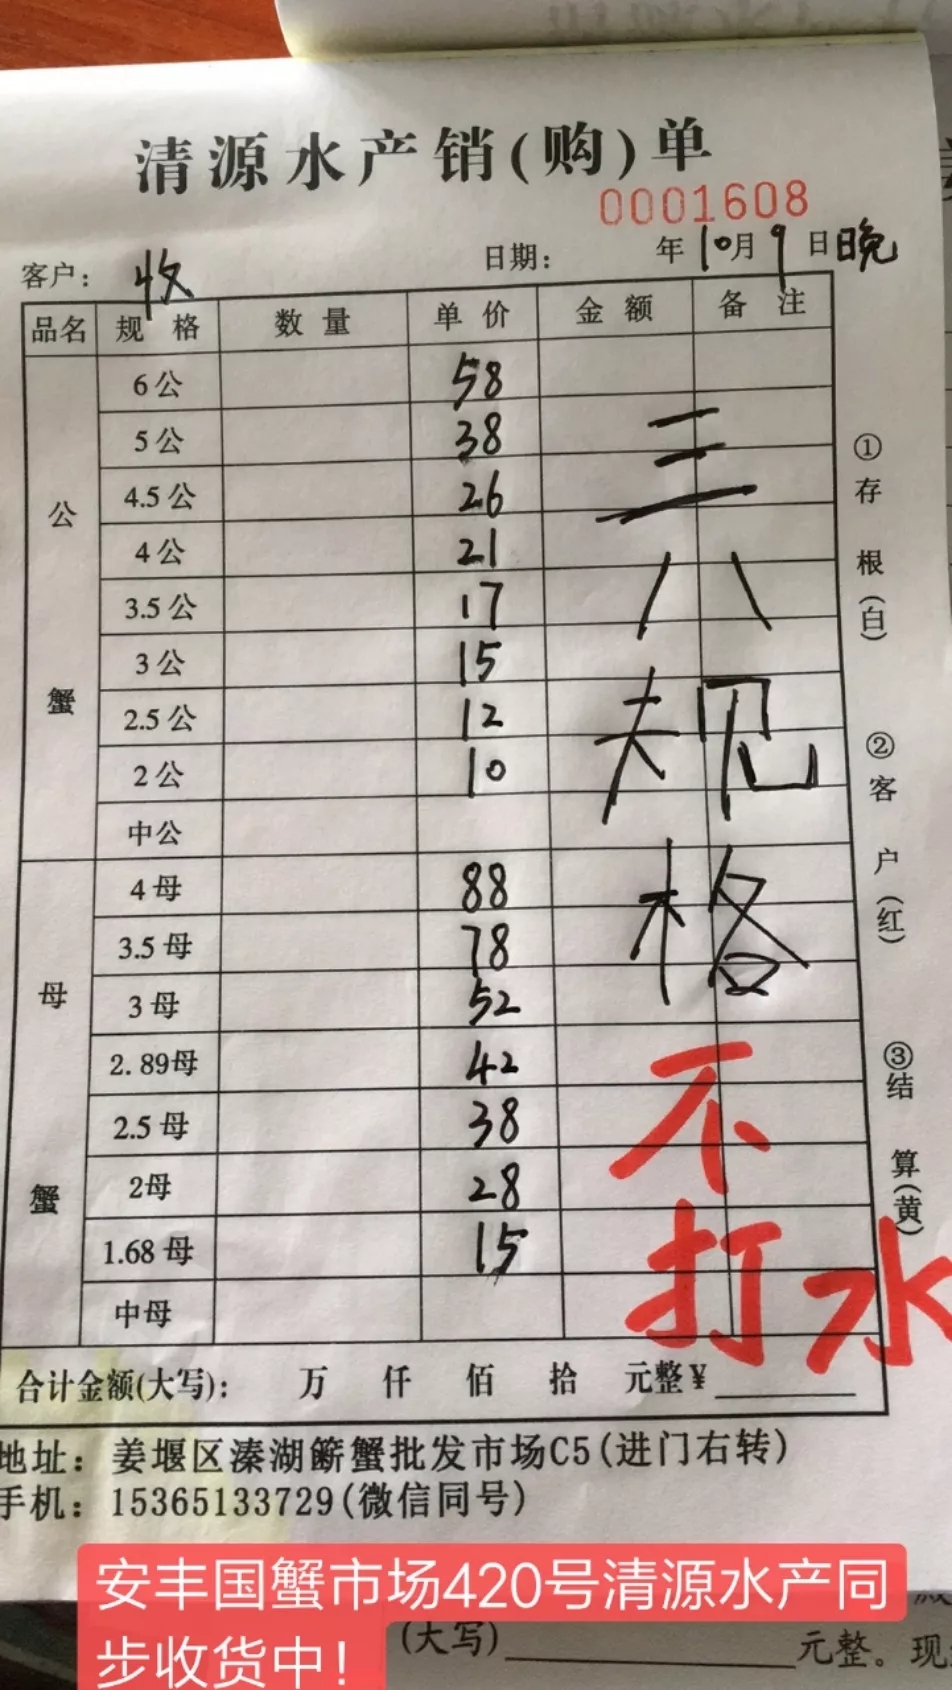 清源水产销(购)单
0001608
客户： 收 日期： 年10月9日晚
品名 规格 数量 单价 金额 备注
公蟹
6公 58
5公 38
4.5公 26
4公 21
3.5公 17
3公 15
2.5公 12
2公 10
中公
母蟹
4母 88
3.5母 78
3母 52
2.89母 42
2.5母 38
2母 28
1.68母 15
中母
三八规格
不打水
①存根(白)
②客户(红)
③结算(黄)
合计金额(大写)： 万 仟 佰 拾 元整¥
地址：姜堰区溱湖簖蟹批发市场C5(进门右转)
手机：15365133729(微信同号)
安丰国蟹市场420号清源水产同
步收货中！
(大写) 元整。现